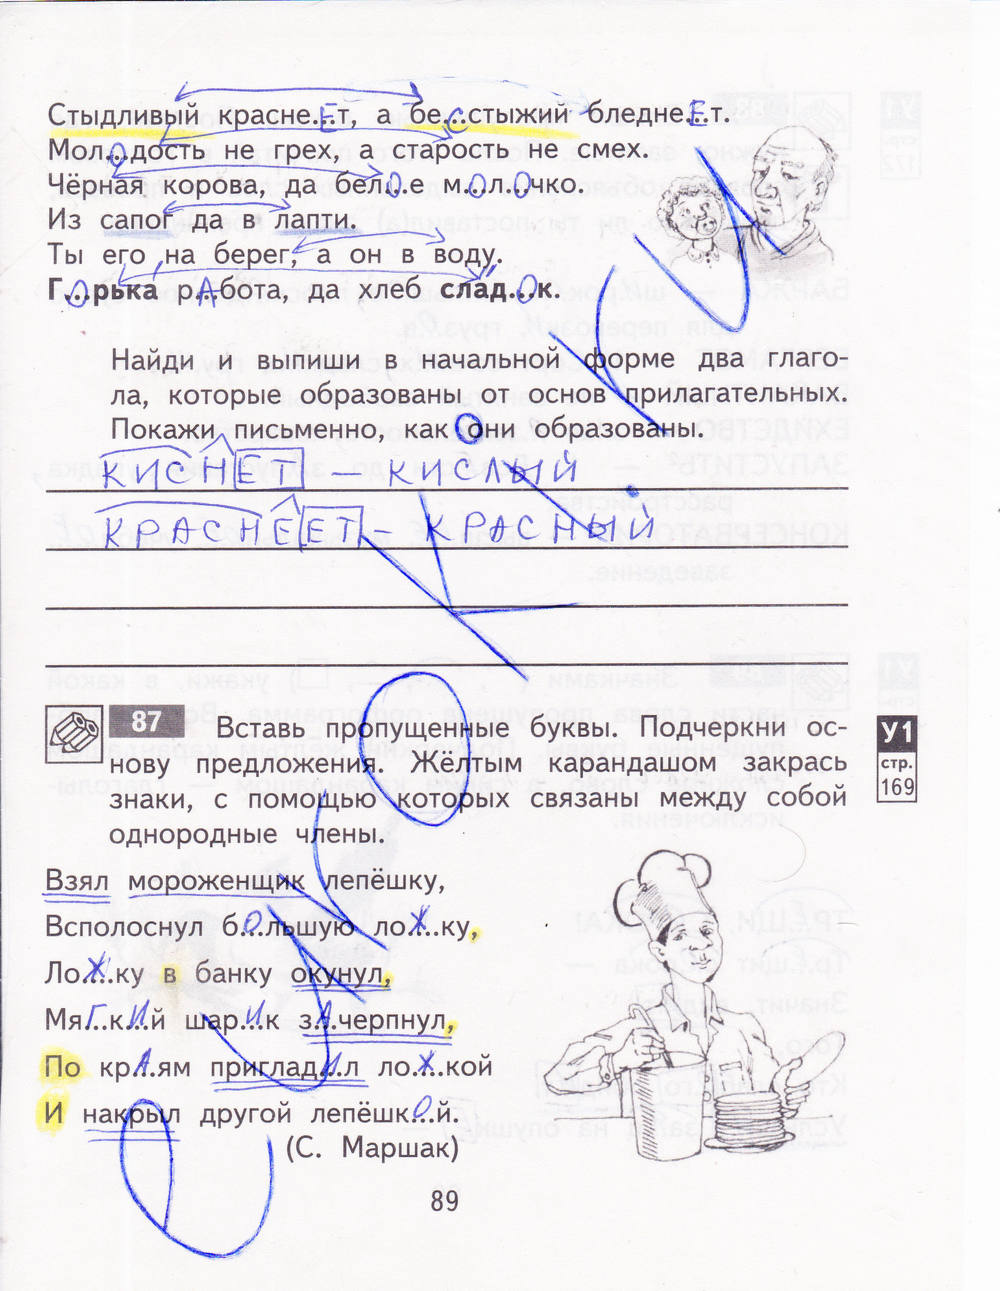 Стыдливый красне...Ет, а бе...Сстыжий бледне...Ет.
Мол..О..дость не грех, а старость не смех.
Чёрная корова, да бел..О..е м..О..л..О..чко.
Из сапог да в лапти.
Ты его на берег, а он в воду.
Г..О..рька р..А..бота, да хлеб слад...Ок.
Найди и выпиши в начальной форме два глаго-
ла, которые образованы от основ прилагательных.
Покажи письменно, как они образованы.
КИСНЕТ – КИСЛЫЙ
КРАСНЕЕТ – КРАСНЫЙ
87 Вставь пропущенные буквы. Подчеркни ос-
нову предложения. Жёлтым карандашом закрась
знаки, с помощью которых связаны между собой
однородные члены.
У1
стр.
169
Взял мороженщик лепёшку,
Всполоснул б..О..льшую ло..Ж..ку,
Ло..Ж..ку в банку окунул,
Мя..Г..к..И..й шар..И..к з..А..черпнул,
По кр..А..ям приглад..И..л ло..Ж..кой
И накрыл другой лепёшк..О..й.
(С. Маршак)
89